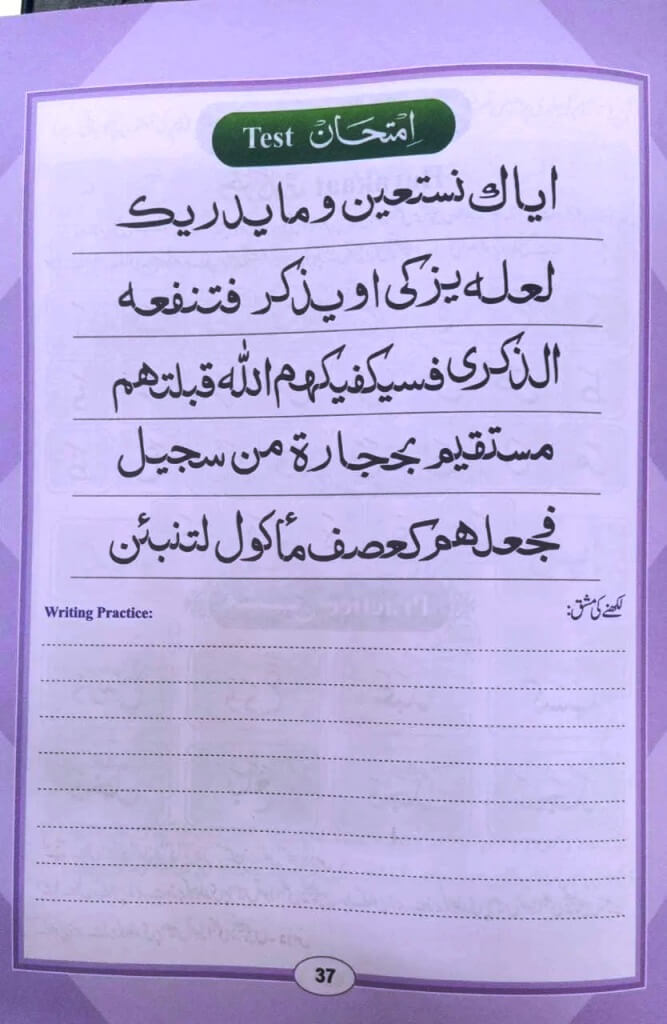 اِمْتِحَانْ Test
اياك نستعين و ما يدريك
لعله يزكى او يذكر فتنفعه
الذكرى فسيكفيكهم الله قبلتهم
مستقيم بحجارة من سجيل
فجعلهم كعصف مأكول لتنبئن
Writing Practice: لکھنے کی مشق:
37